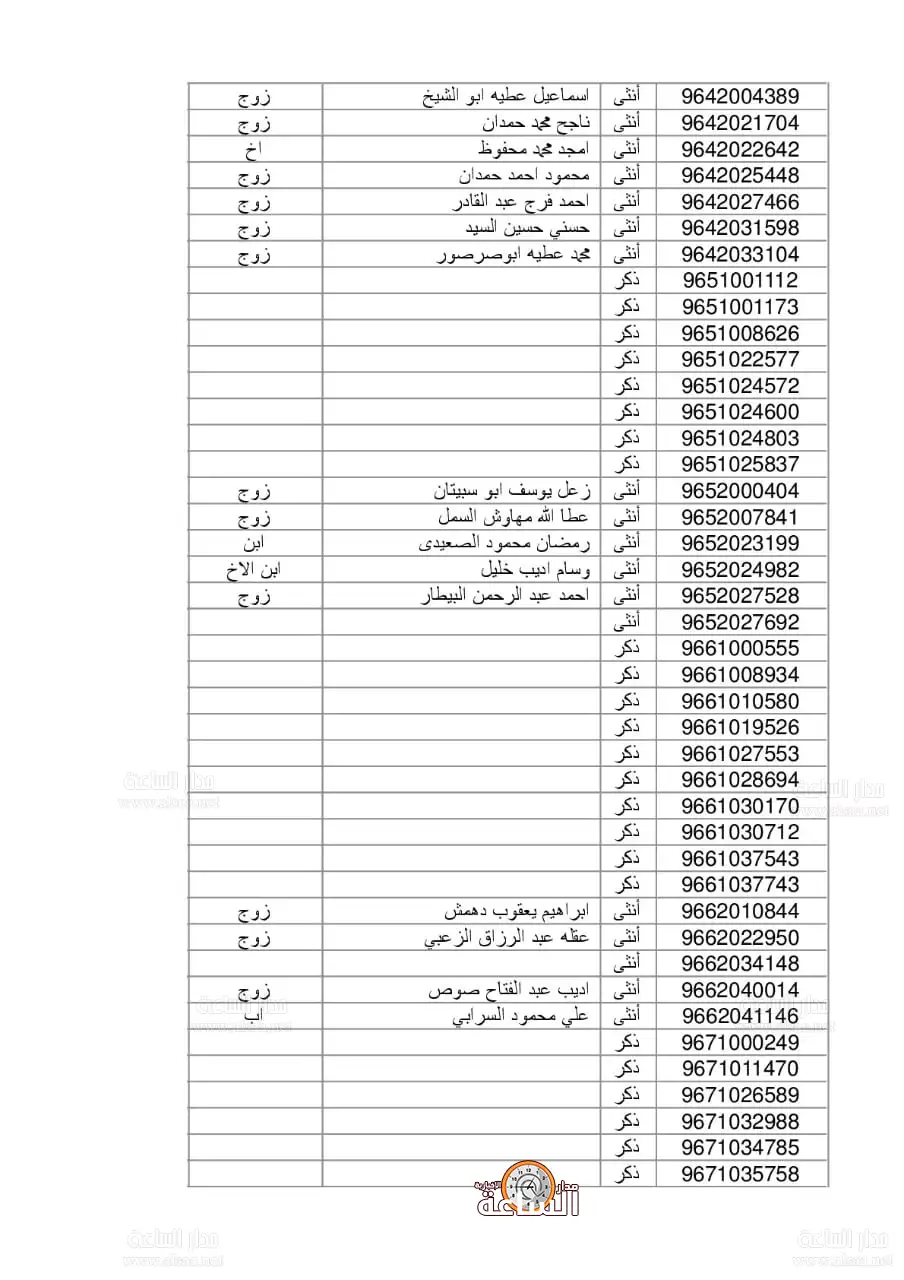 9642004389 أنثى اسماعيل عطيه ابو الشيخ زوج
9642021704 أنثى ناجح محمد حمدان زوج
9642022642 أنثى امجد محمد محفوظ اخ
9642025448 أنثى محمود احمد حمدان زوج
9642027466 أنثى احمد فرج عبد القادر زوج
9642031598 أنثى حسني حسين السيد زوج
9642033104 أنثى محمد عطيه ابوصرصور زوج
9651001112 ذكر
9651001173 ذكر
9651008626 ذكر
9651022577 ذكر
9651024572 ذكر
9651024600 ذكر
9651024803 ذكر
9651025837 ذكر
9652000404 أنثى زعل يوسف ابو سبيتان زوج
9652007841 أنثى عطا الله مهاوش السمل زوج
9652023199 أنثى رمضان محمود الصعيدى ابن
9652024982 أنثى وسام اديب خليل ابن الاخ
9652027528 أنثى احمد عبد الرحمن البيطار زوج
9652027692 أنثى
9661000555 ذكر
9661008934 ذكر
9661010580 ذكر
9661019526 ذكر
9661027553 ذكر
9661028694 ذكر
9661030170 ذكر
9661030712 ذكر
9661037543 ذكر
9661037743 ذكر
9662010844 أنثى ابراهيم يعقوب دهمش زوج
9662022950 أنثى عقله عبد الرزاق الزعبي زوج
9662034148 أنثى
9662040014 أنثى اديب عبد الفتاح صوص زوج
9662041146 أنثى علي محمود السرابي اب
9671000249 ذكر
9671011470 ذكر
9671026589 ذكر
9671032988 ذكر
9671034785 ذكر
9671035758 ذكر
مدار الساعة الإخبارية
مدار الساعة
www.alsaa.net